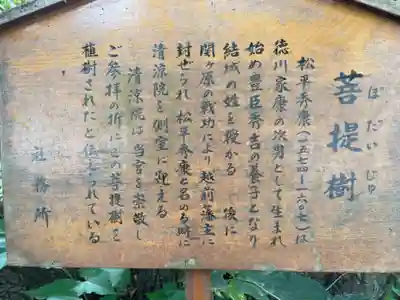 菩提樹
ぼだいじゅ
松平秀康(一五七四ー一六〇七)は
徳川家康の次男として生まれ
始め豊臣秀吉の養子となり
結城の姓を授かる 後に
関ヶ原の戦功により越前藩主に
封ぜられ 松平秀康と名のる時に
清涼院を側室に迎える
清涼院は当宮を崇敬し
ご参拝の折にこの菩提樹を
植樹されたと伝えられている
社務所